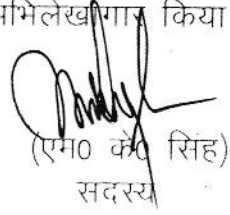 अभिलेखागार किया
(एम0 के0 सिंह)
सदस्य